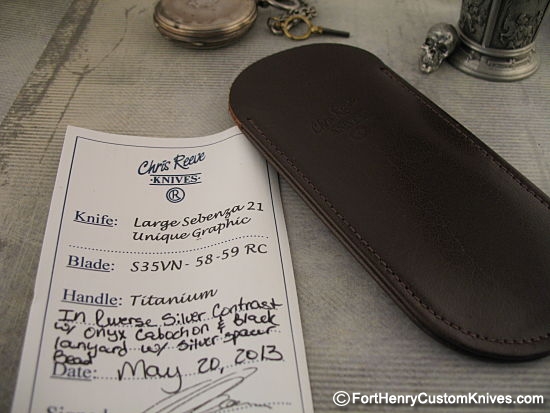 Chris Reeve
·KNIVES·
®
Knife: Large Sebenza 21
Unique Graphic
Blade: S35VN - 58-59 RC
Handle: Titanium
In Reverse Silver Contrast
w/ Onyx Cabochon & Black
lanyard w/ silver spacer
Bead
Date: May 20, 2013
Chris Reeve
KNIVES
©FortHenryCustomKnives.com